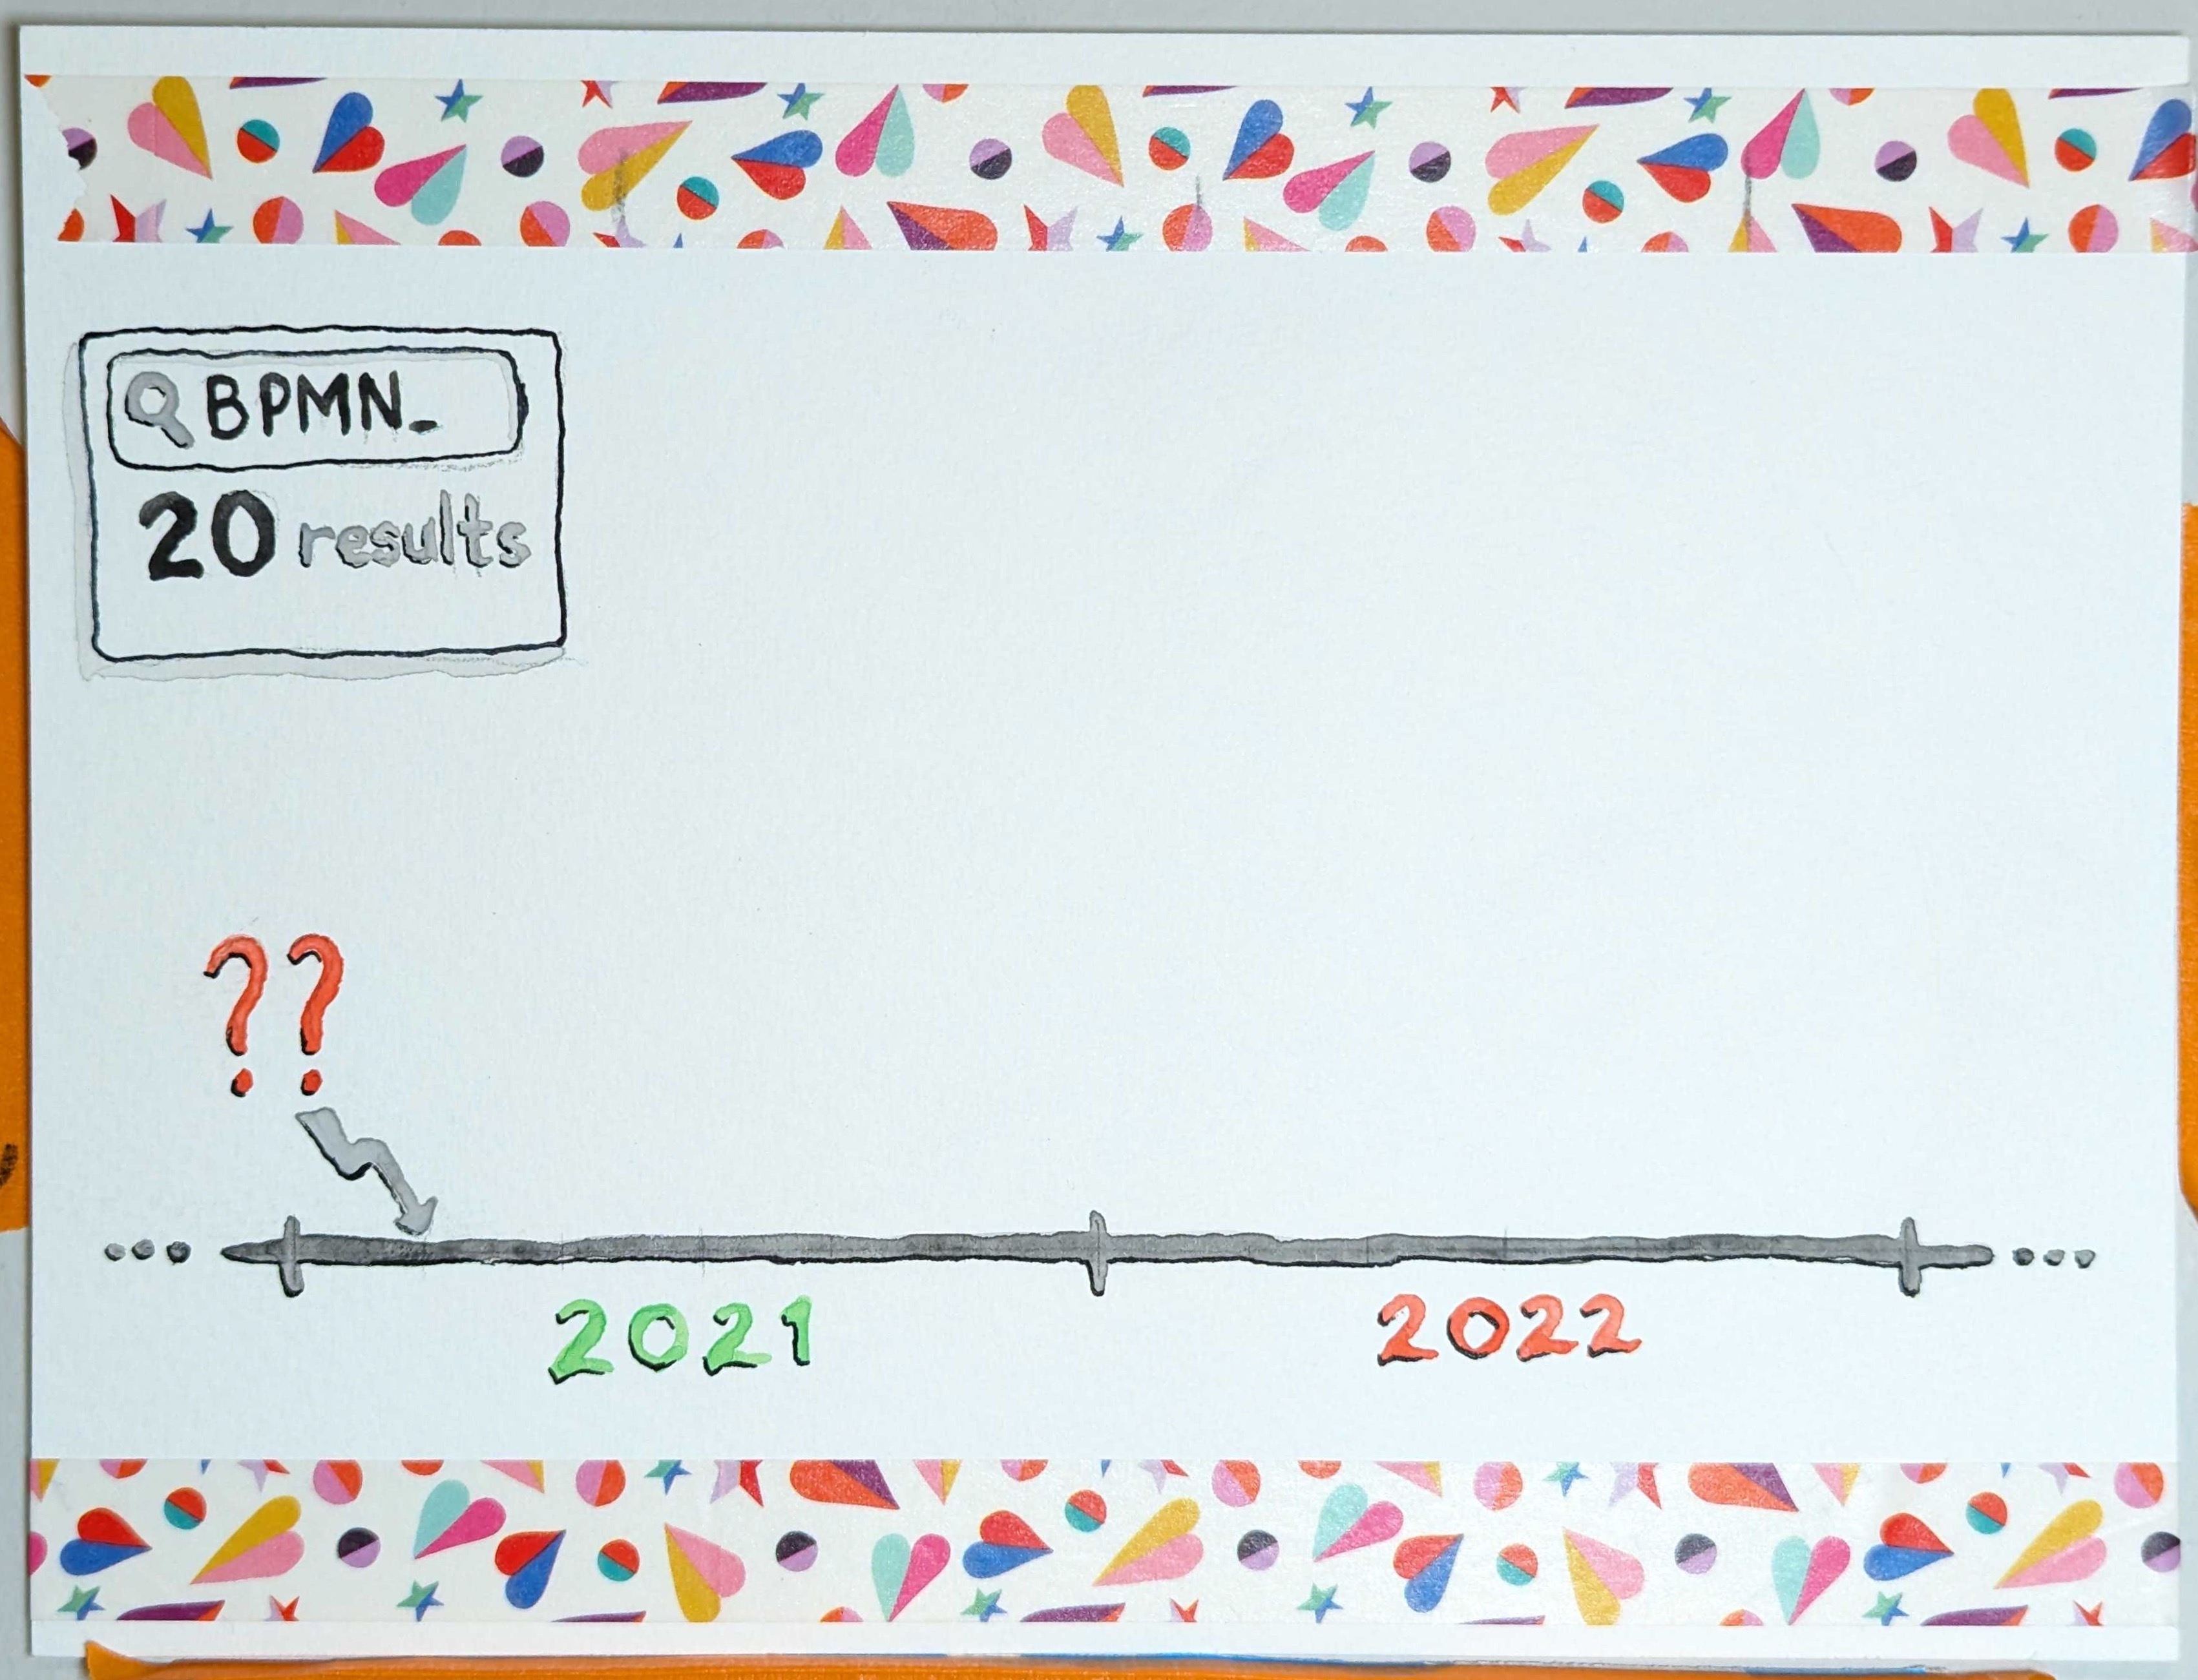 BPMN_
20 results
??
... ...
2021 2022